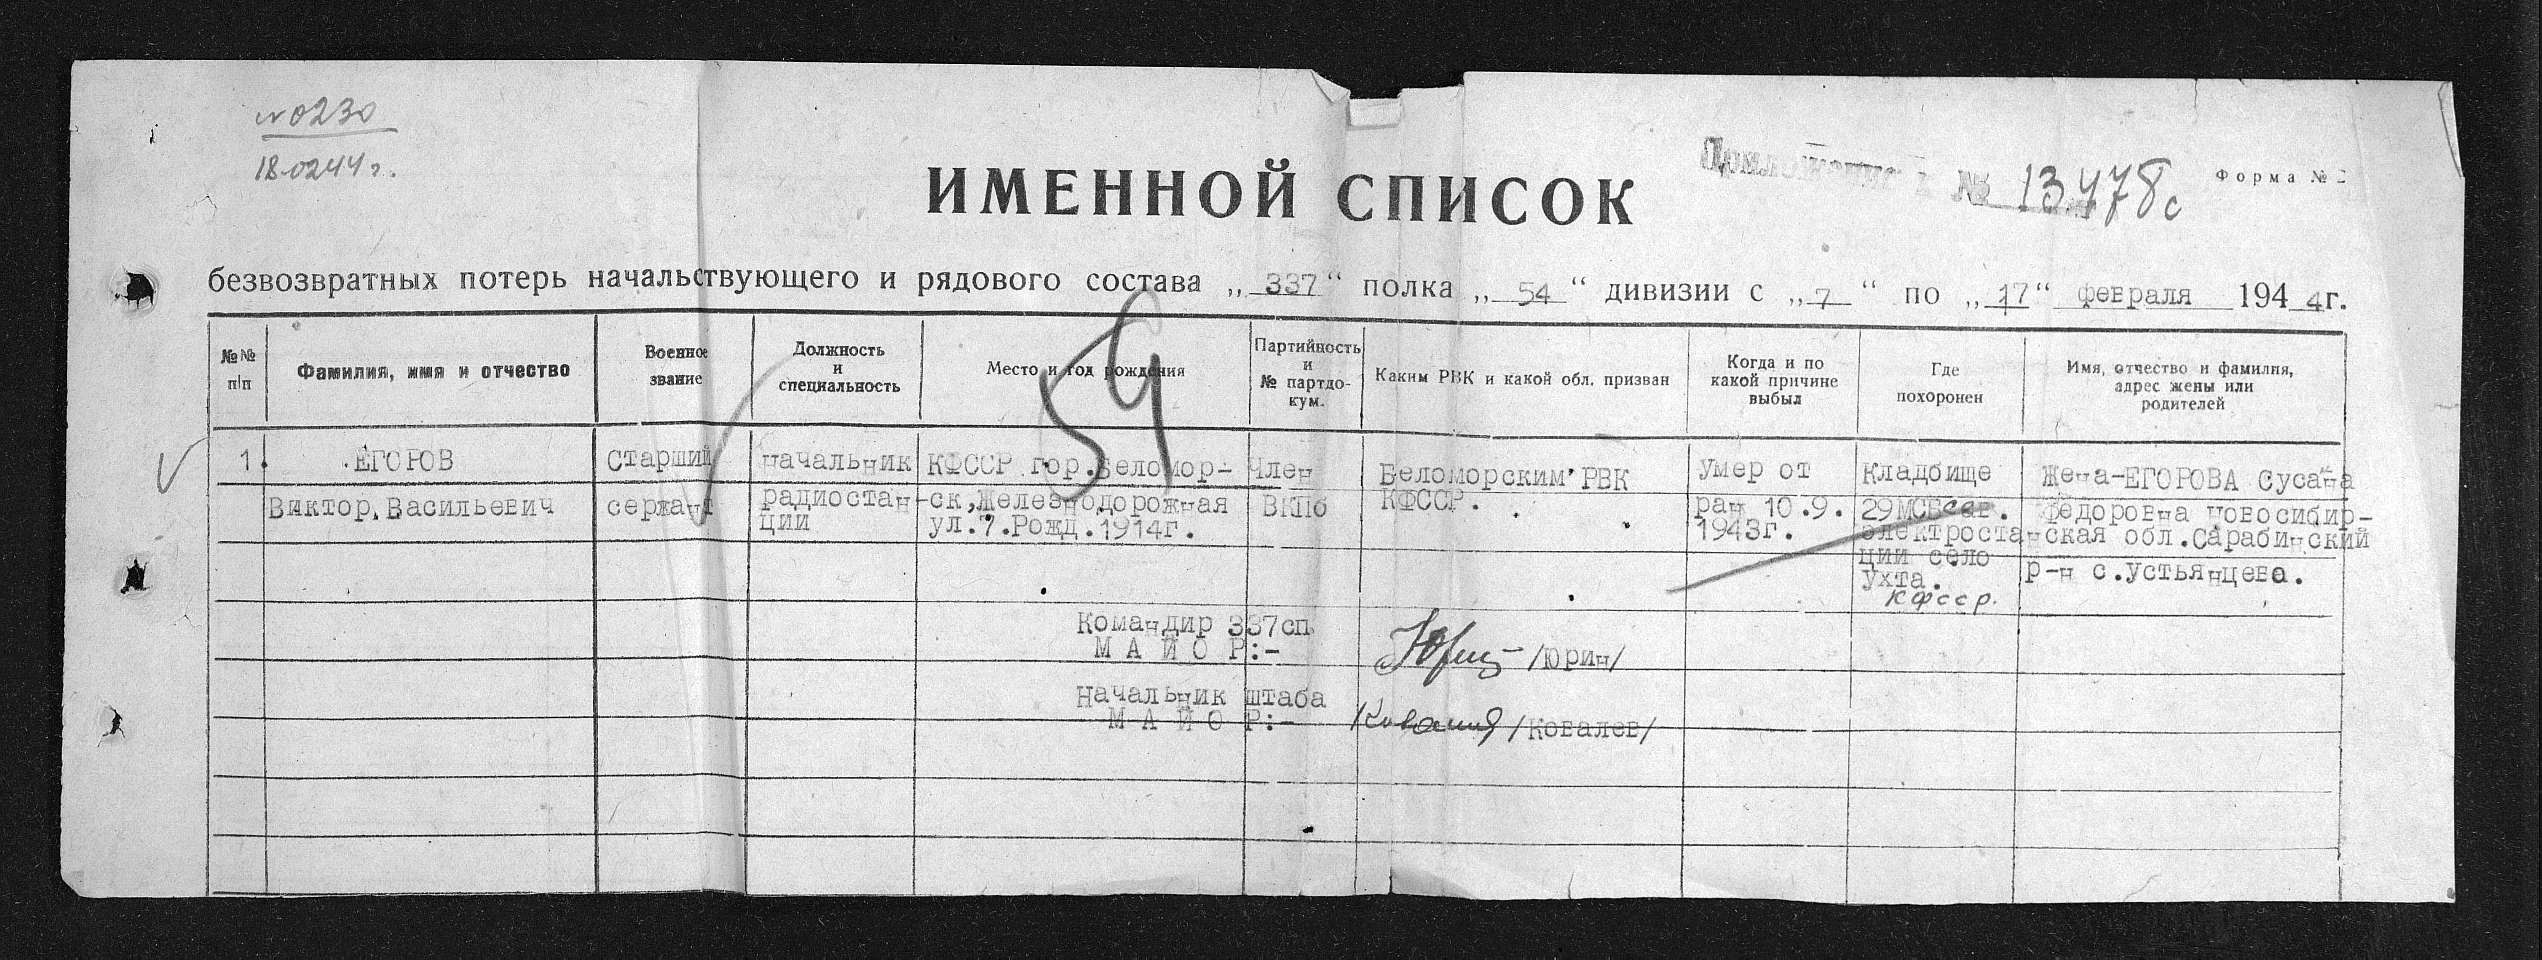 № 0230
18.02.44 г.
Приложение к № 13478с
Форма № 2
ИМЕННОЙ СПИСОК
безвозвратных потерь начальствующего и рядового состава „337“ полка „54“ дивизии с „7“ по „17“ февраля 1944г.
59
№№ п/п
Фамилия, имя и отчество
Военное звание
Должность и специальность
Место и год рождения
Партийность и № партдо-кум.
Каким РВК и какой обл. призван
Когда и по какой причине выбыл
Где похоронен
Имя, отчество и фамилия, адрес жены или родителей
1.
ЕГОРОВ
Виктор Васильевич
Старший
сержант
начальник
радиостан-
ции
КФССР гор.Беломор-
ск,Железнодорожная
ул.7.Рожд.1914г.
Член
ВКПб
Беломорским РВК
КФССР.
Умер от
ран 10.9.
1943г.
Кладбище
29МСБ сев.
электростан
ции село
Ухта.
КФССР.
Жена-ЕГОРОВА Сусана
Федоровна Новосибир-
ская обл.Сарабинский
р-н с.Устьянцево.
Командир 337сп
МАЙОР:-
/Юрин/
Начальник штаба
МАЙОР:-
Ковалев /Ковалев/